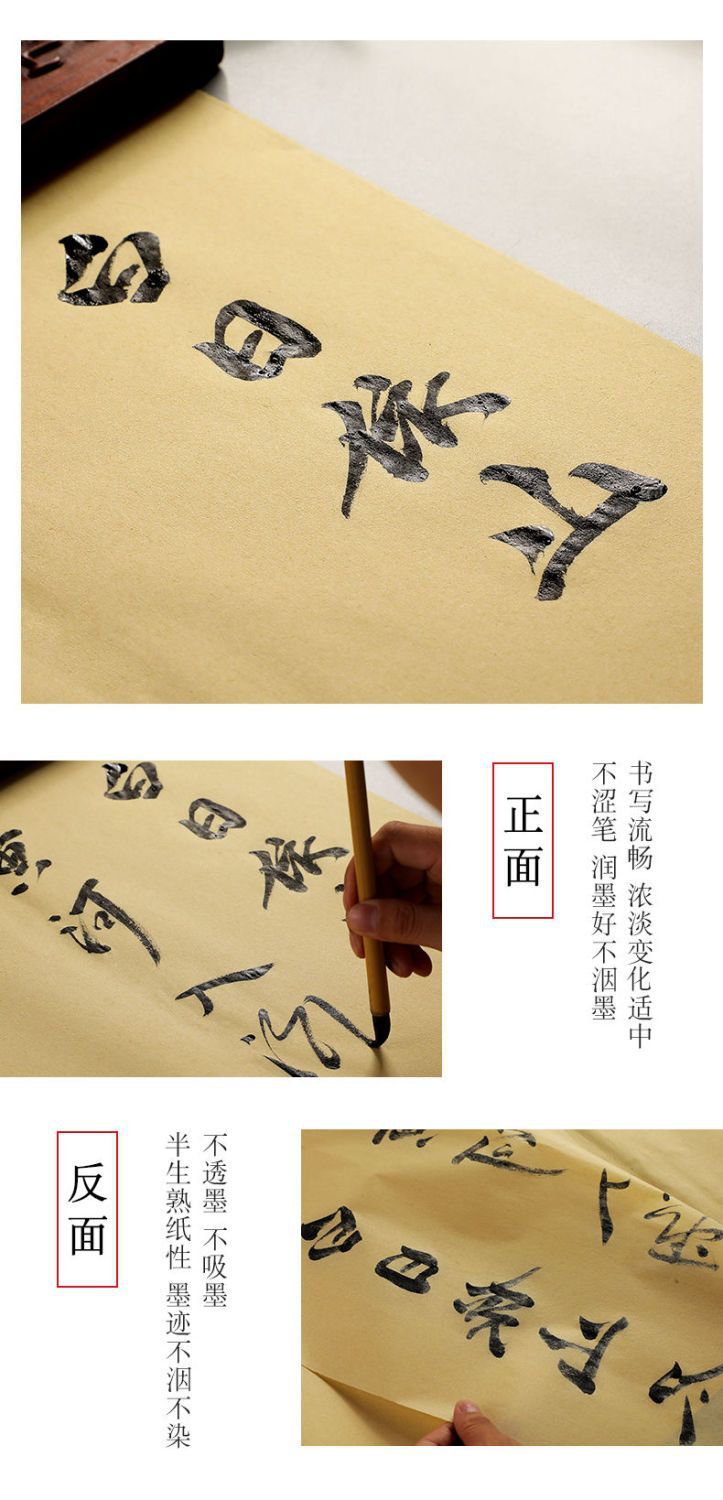 白日依山
白日依
河入海
正面
书写流畅 浓淡变化适中
不涩笔 润墨好不洇墨
反面
不透墨 不吸墨
半生熟纸性 墨迹不洇不染